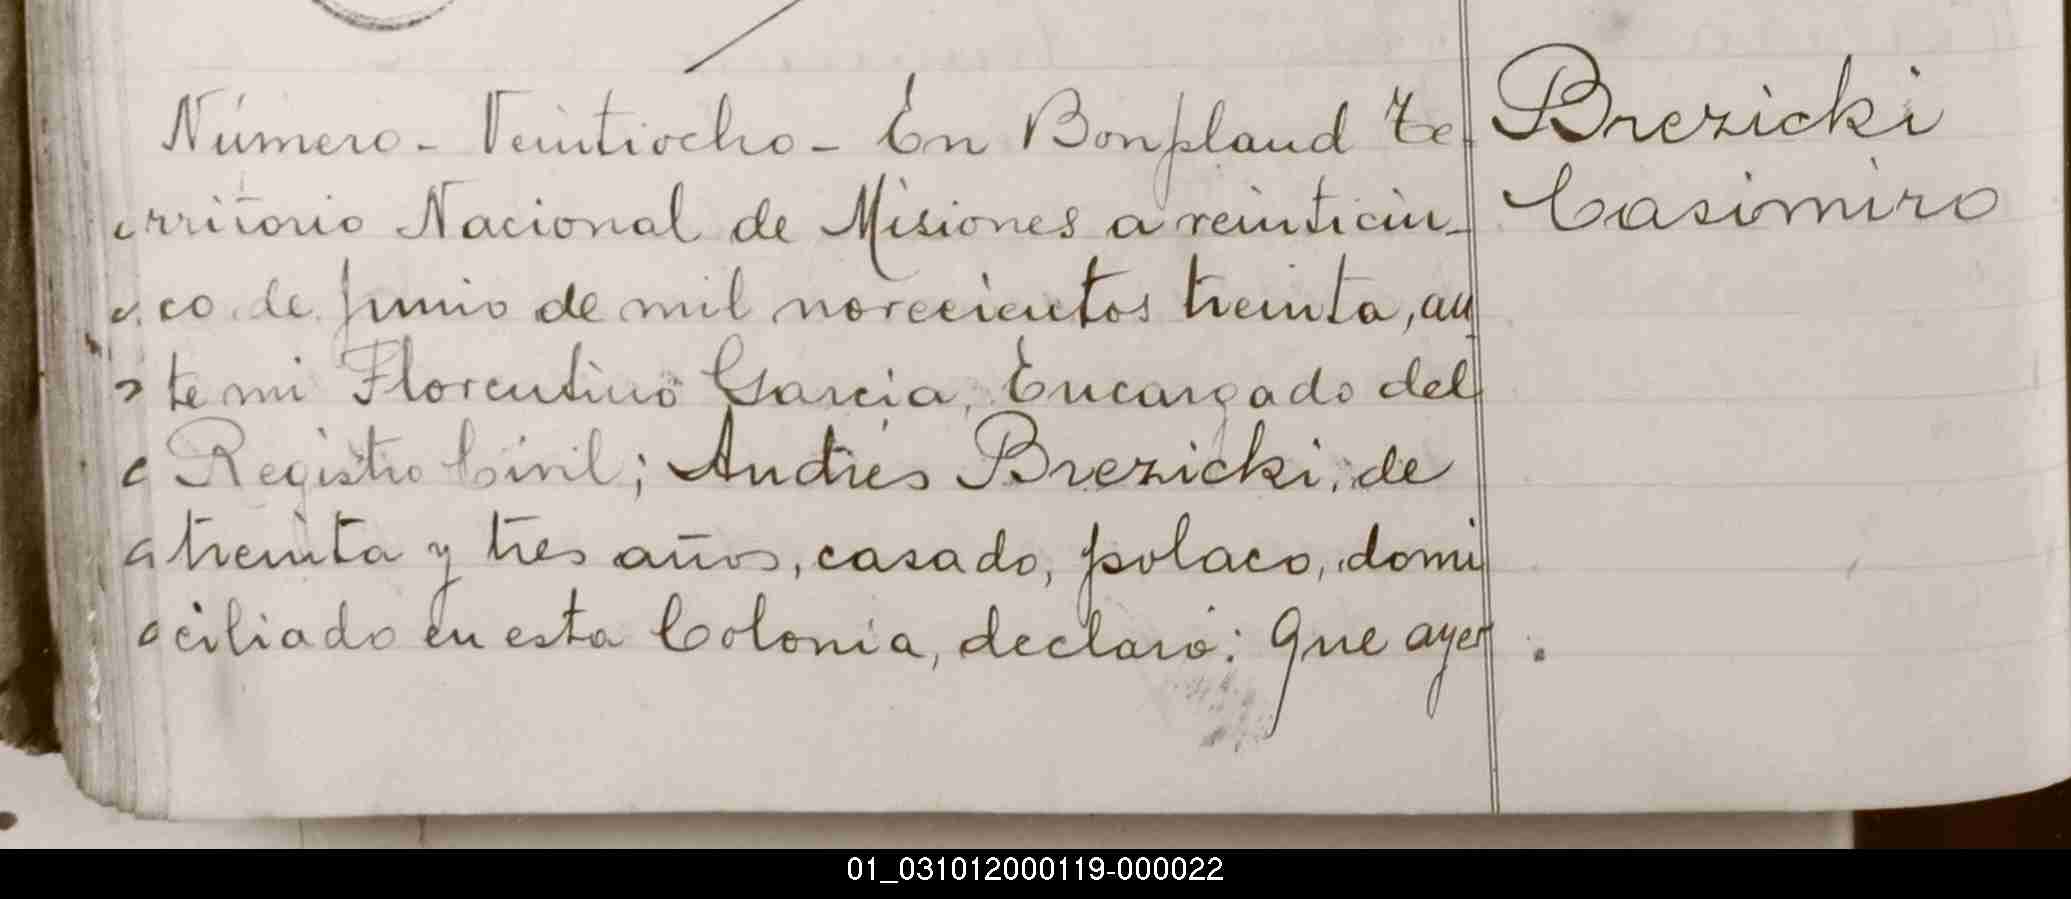 Número - Veintiocho - En Bonpland Te-
rritorio Nacional de Misiones a veinticin-
co de Junio de mil novecientos treinta, an
te mi Florentino Garcia, Encargado del
Registro Civil; Andrés Brezicki, de
treinta y tres años, casado, polaco, domi
ciliado en esta Colonia, declaró: Que ayer
Brezicki
Casimiro
01_031012000119-000022